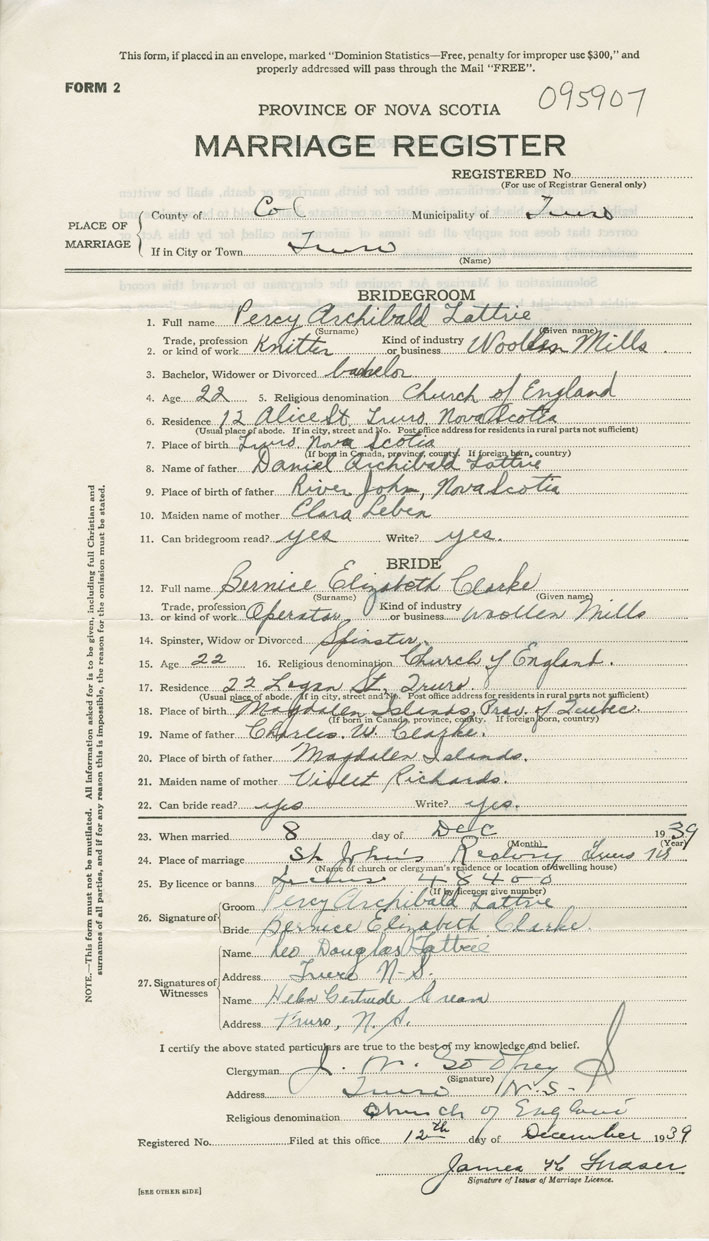 This form, if placed in an envelope, marked "Dominion Statistics—Free, penalty for improper use $300," and
properly addressed will pass through the Mail "FREE".
FORM 2
095907
PROVINCE OF NOVA SCOTIA
MARRIAGE REGISTER
REGISTERED No.
(For use of Registrar General only)
PLACE OF MARRIAGE
County of Col Municipality of Truro
If in City or Town Truro
(Name)
BRIDEGROOM
1. Full name Percy Archibald Lattie
(Surname) (Given name)
2. Trade, profession or kind of work Knitter Kind of industry or business Woollen Mills.
3. Bachelor, Widower or Divorced bachelor
4. Age 22 5. Religious denomination Church of England
6. Residence 12 Alice St, Truro, Nova Scotia
(Usual place of abode. If in city, street and No. Post office address for residents in rural parts not sufficient)
7. Place of birth Truro Nova Scotia
(If born in Canada, province, county. If foreign born, country)
8. Name of father Daniel Archibald Lattie
9. Place of birth of father River John, Nova Scotia
10. Maiden name of mother Clara
11. Can bridegroom read? yes Write? yes.
BRIDE
12. Full name Bernice Elizabeth Clarke
(Surname) (Given name)
13. Trade, profession or kind of work Operator Kind of industry or business woollen Mills
14. Spinster, Widow or Divorced Spinster.
15. Age 22 16. Religious denomination Church of England.
17. Residence 22 Logan St. Truro.
(Usual place of abode. If in city, street and No. Post office address for residents in rural parts not sufficient)
18. Place of birth Magdalen Islands, Prov. of Quebec.
(If born in Canada, province, county. If foreign born, country)
19. Name of father Charles. W. Clarke.
20. Place of birth of father Magdalen Islands.
21. Maiden name of mother Violet Richards.
22. Can bride read? yes Write? yes.
23. When married 8 day of Dec 1939
(Month) (Year)
24. Place of marriage St John's Rectory Truro NS
(Name of church or clergyman's residence or location of dwelling house)
25. By licence or banns License 48400
(If by licence, give number)
26. Signature of
Groom Percy Archibald Lattie
Bride Bernice Elizabeth Clarke.
27. Signatures of Witnesses
Name Leo Douglas Lattie
Address Truro N-S.
Name Helen Gertrude Cream
Address Truro, N.S.
I certify the above stated particulars are true to the best of my knowledge and belief.
Clergyman J. W. Godfrey
(Signature)
Address Truro N.S.
Religious denomination Church of England
Registered No. Filed at this office 12th day of December 1939
James K Fraser
Signature of Issuer of Marriage Licence.
[SEE OTHER SIDE]
NOTE.—This form must not be mutilated. All Information asked for is to be given, including full Christian and
surnames of all parties, and if for any reason this is impossible, the reason for the omission must be stated.